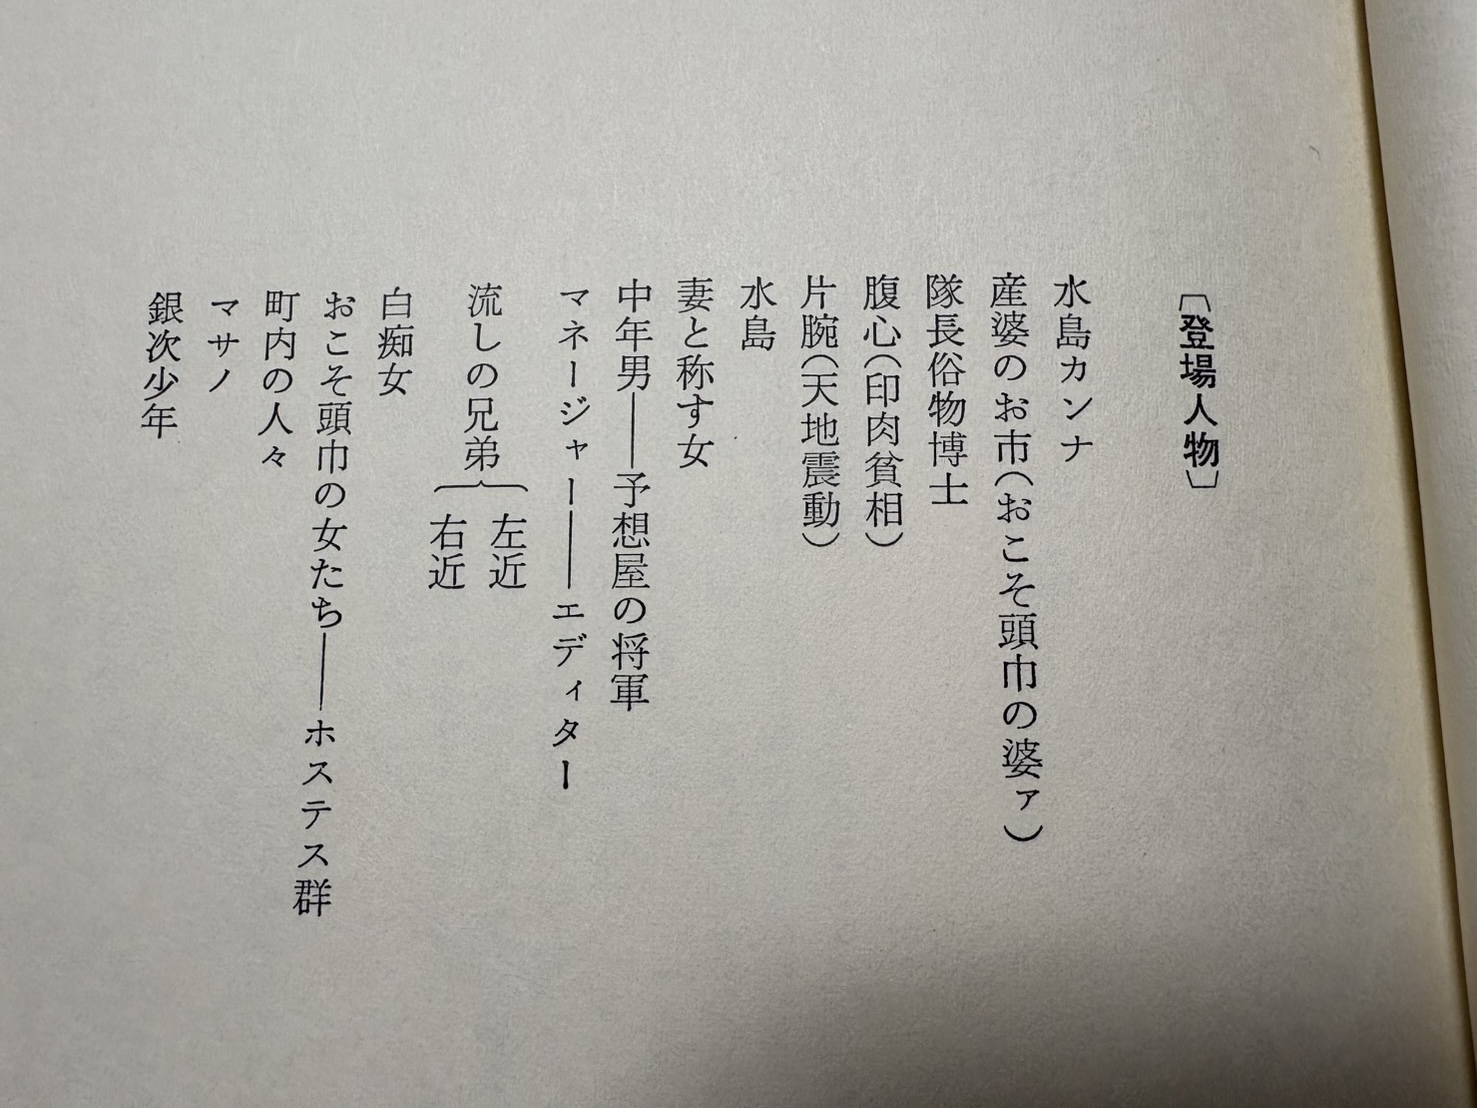 〔登場人物〕
水島カンナ
産婆のお市(おこそ頭巾の婆ァ)
隊長俗物博士
腹心(印肉貧相)
片腕(天地震動)
水島
妻と称す女
中年男――予想屋の将軍
マネージャー――エディター
流しの兄弟{左近
右近
白痴女
おこそ頭巾の女たち――ホステス群
町内の人々
マサノ
銀次少年